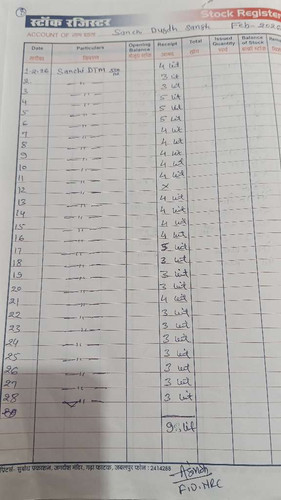 स्टॉक रजिस्टर Stock Register
ACCOUNT OF Sanchi Dugdh Sangh Feb-202
Date Particulars Opening Balance Receipt Total Issued Quantity Balance of Stock
1-2-26 Sanchi DTM 4 lit
2 —"— 3 lit
3 —"— 3 lit
4 —"— 5 lit
5 —"— 5 lit
6 —"— 5 lit
7 —"— 4 lit
8 —"— 4 lit
9 —"— 4 lit
10 —"— 4 lit
11 —"— 4 lit
12 —"— X
13 —"— 4 lit
14 —"— 4 lit
15 —"— 4 lit
16 —"— 4 lit
17 —"— 5 lit
18 —"— 3 lit
19 —"— 3 lit
20 —"— 3 lit
21 —"— 4 lit
22 —"— 3 lit
23 —"— 3 lit
24 —"— 3 lit
25 —"— 3 lit
26 —"— 3 lit
27 —"— 3 lit
28 —"— 3 lit
प्रिंटर्स- सुबोध प्रकाशन, जगदीश मंदिर, गढ़ा फाटक, जबलपुर फोन : 2414288
F.D. NRC